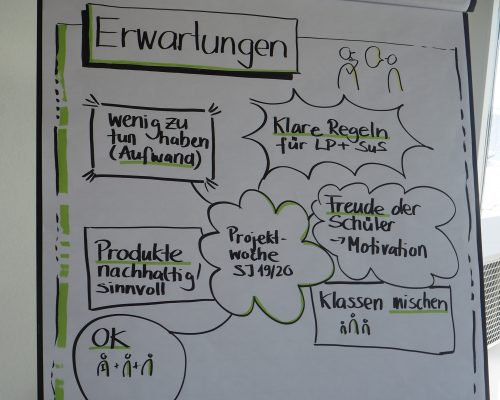 Erwartungen
wenig zu
tun haben
(Aufwand)
Klare Regeln
für LP+ SuS
Freude der
Schüler
→ Motivation
Projekt-
woche
SJ 19/20
Produkte
nachhaltig/
sinnvoll
Klassen mischen
OK
+ +